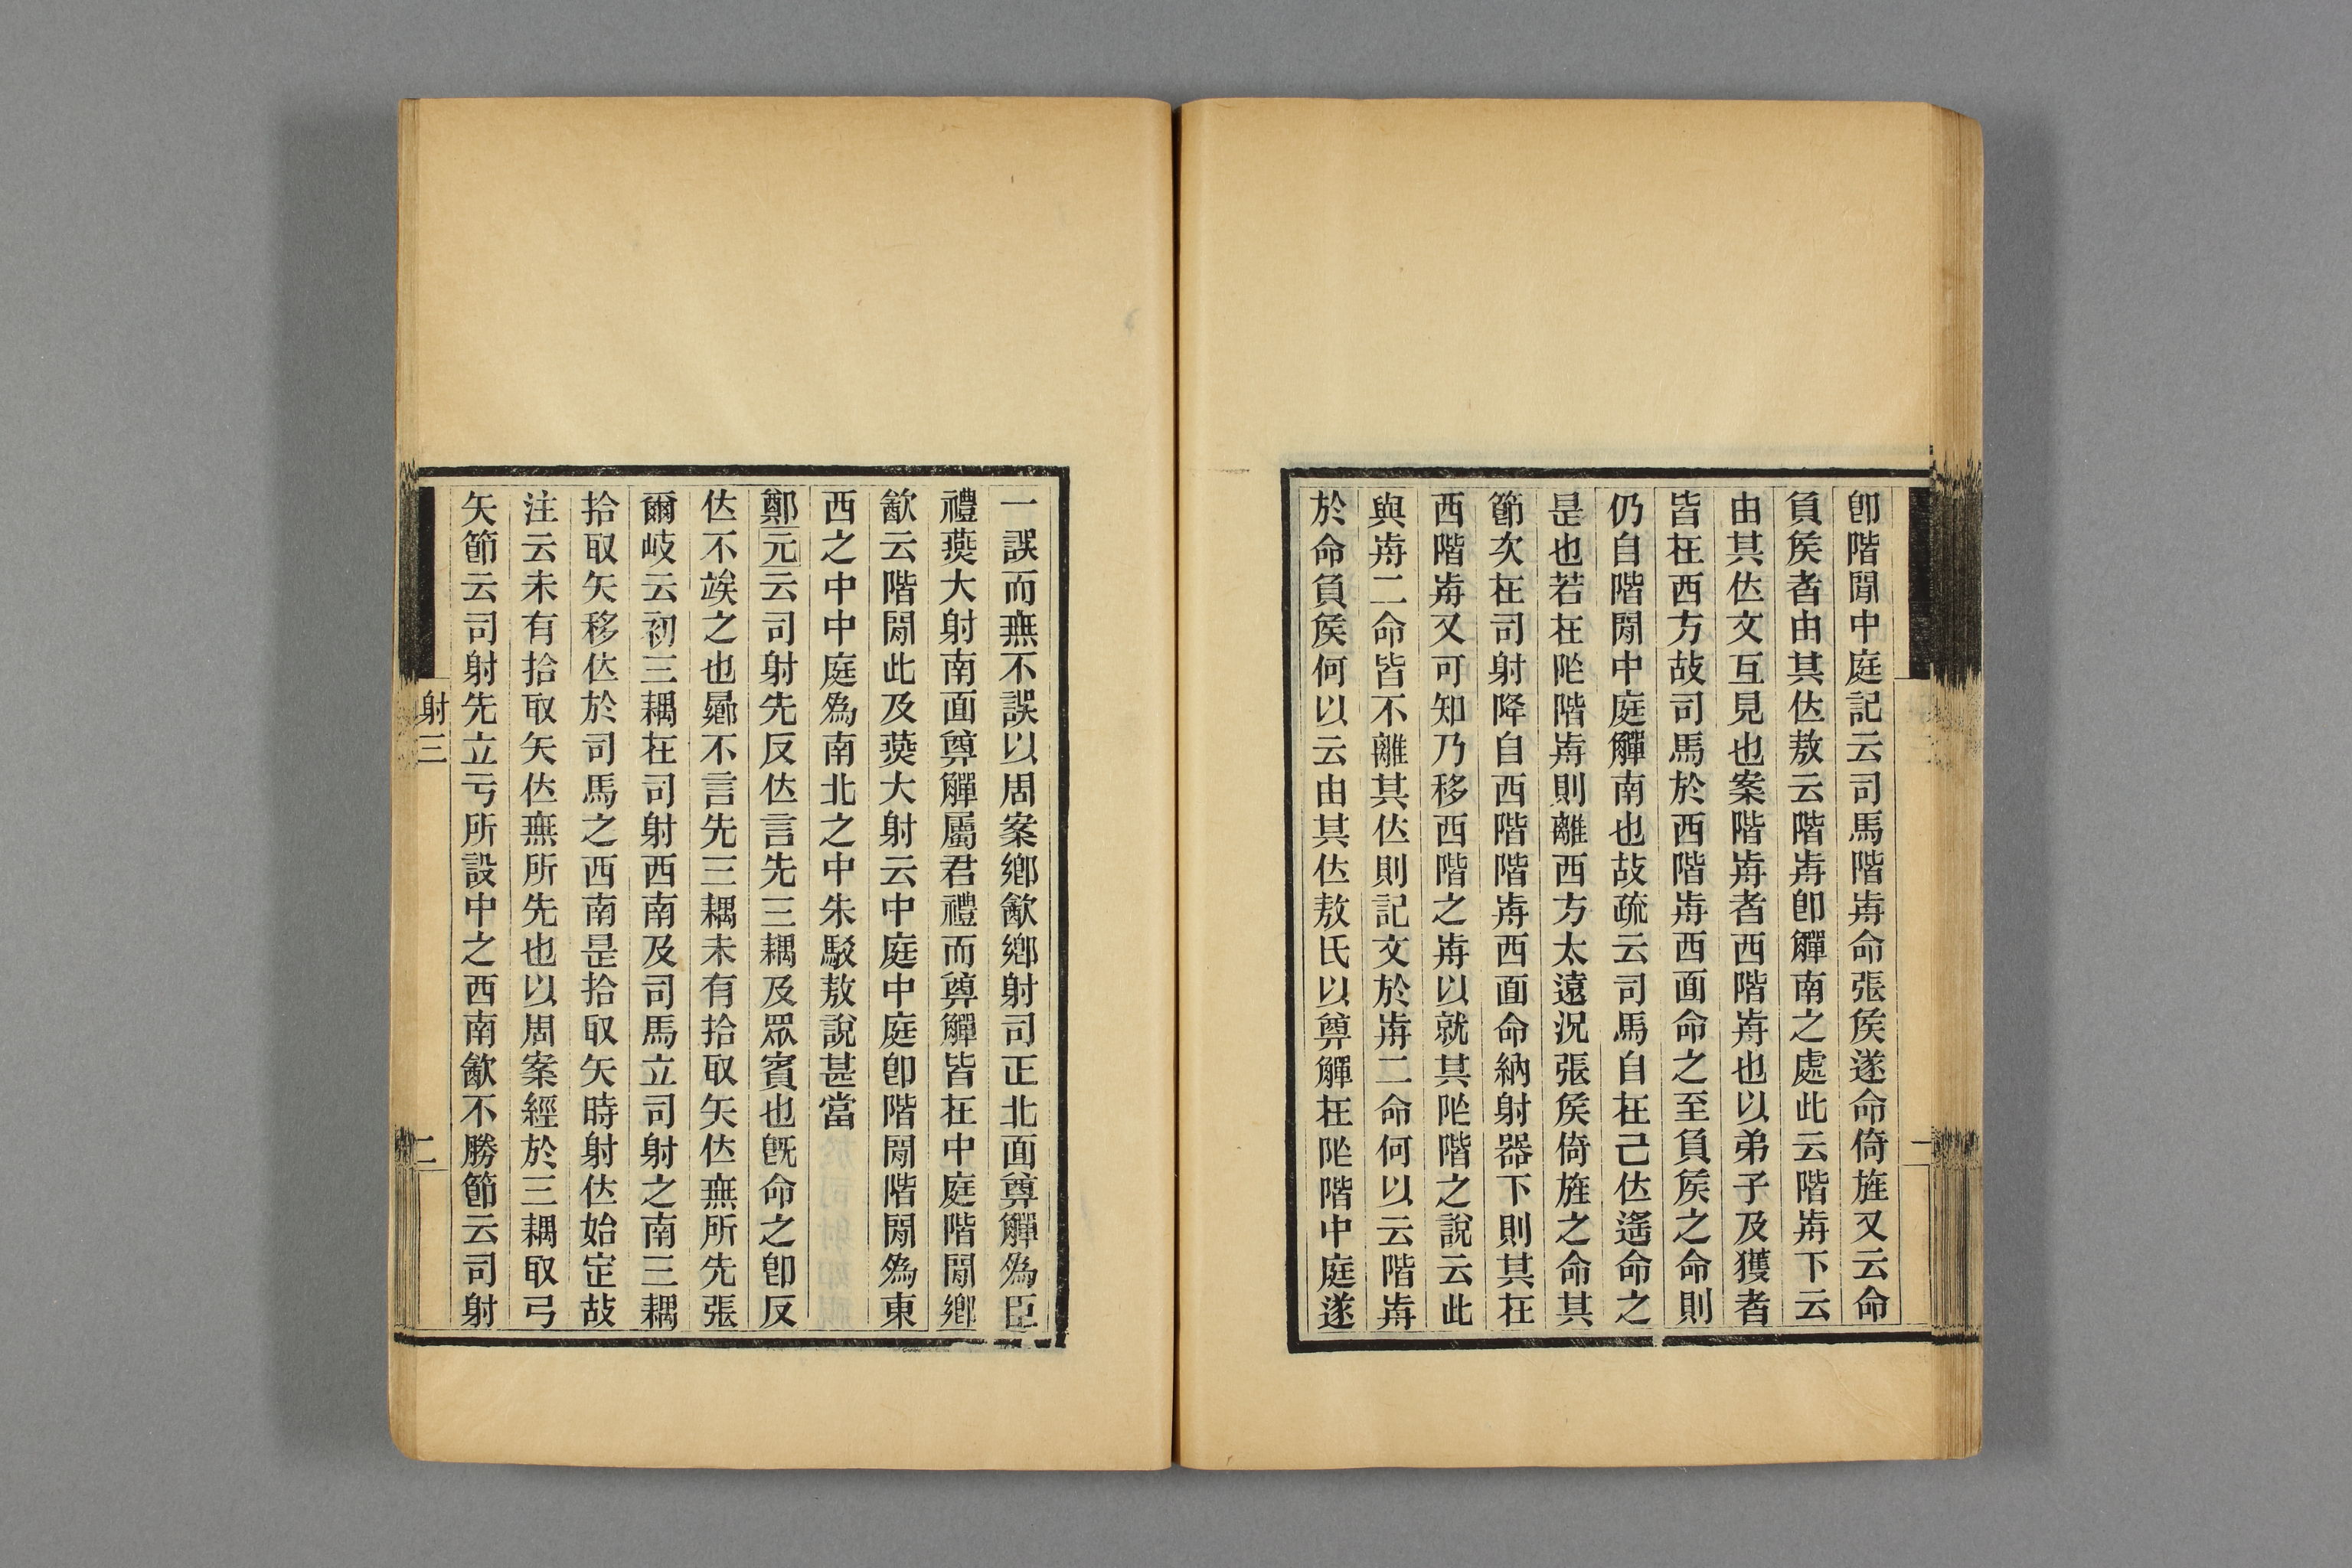 卽階閒中庭記云司馬階歬命張矦遂命倚旌又云命
負矦者由其位敖云階歬卽觶南之處此云階歬下云
由其位文互見也案階歬者西階歬也以弟子及獲者
皆在西方故司馬於西階歬西面命之至負矦之命則
仍自階閒中庭觶南也故疏云司馬自在己位遙命之
是也若在阼階歬則離西方太遠況張矦倚旌之命其
節次在司射降自西階階歬西面命納射器下則其在
西階歬又可知乃移西階之歬以就其阼階之說云此
與歬二命皆不離其位則記文於歬二命何以云階歬
於命負矦何以云由其位敖氏以奠觶在阼階中庭遂
一誤而無不誤以周案鄉飮鄉射司正北面奠觶爲臣
禮燕大射南面奠觶屬君禮而奠觶皆在中庭階閒鄉
飮云階閒此及燕大射云中庭中庭卽階閒階閒爲東
西之中中庭爲南北之中朱駁敖說甚當
鄭元云司射先反位言先三耦及眾賓也旣命之卽反
位不竢之也曏不言先三耦未有拾取矢位無所先張
爾岐云初三耦在司射西南及司馬立司射之南三耦
拾取矢移位於司馬之西南是拾取矢時射位始定故
注云未有拾取矢位無所先也以周案經於三耦取弓
矢節云司射先立亏所設中之西南飮不勝節云司射
射三
二